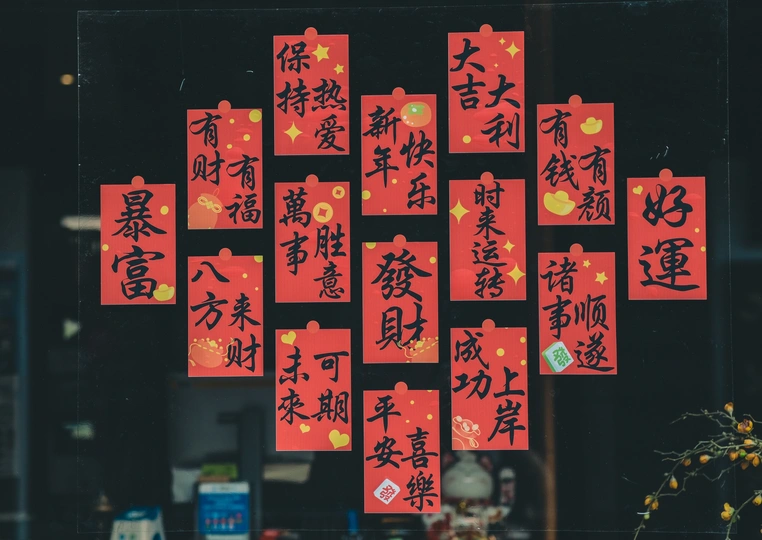 暴富
有财有福
八方来财
保持热爱
萬事胜意
未來可期
新年快乐
發財
平安喜樂
發
大吉大利
时来运转
成功上岸
有钱有颜
诸事顺遂
發
好運